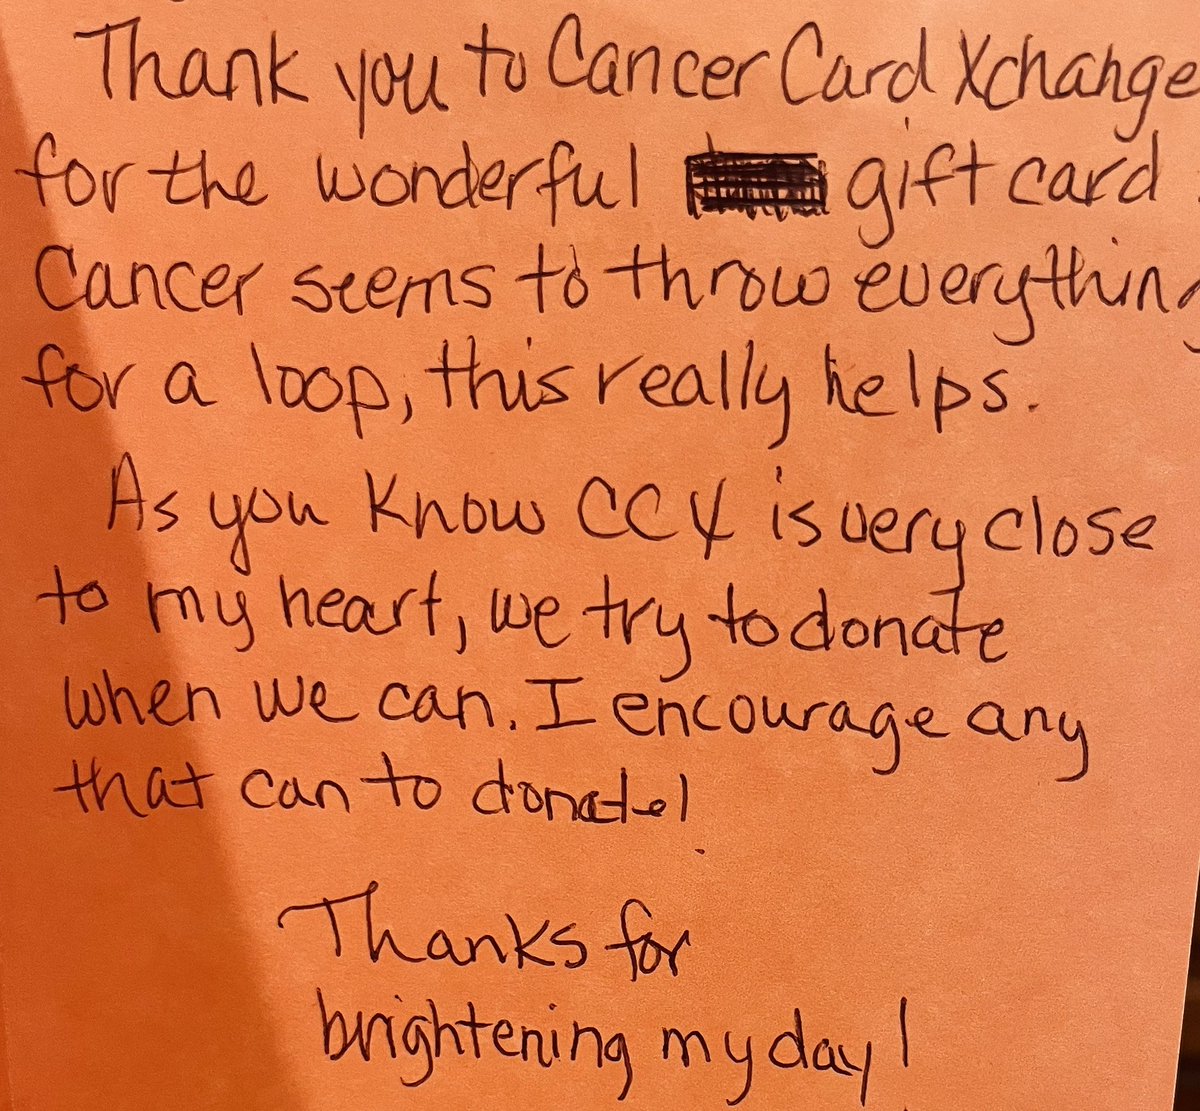 Thank you to Cancer Card Xchange
for the wonderful gift card.
Cancer seems to throw everything
for a loop, this really helps.
As you know CCX is very close
to my heart, we try to donate
when we can. I encourage any
that can to donate!
Thanks for
brightening my day!